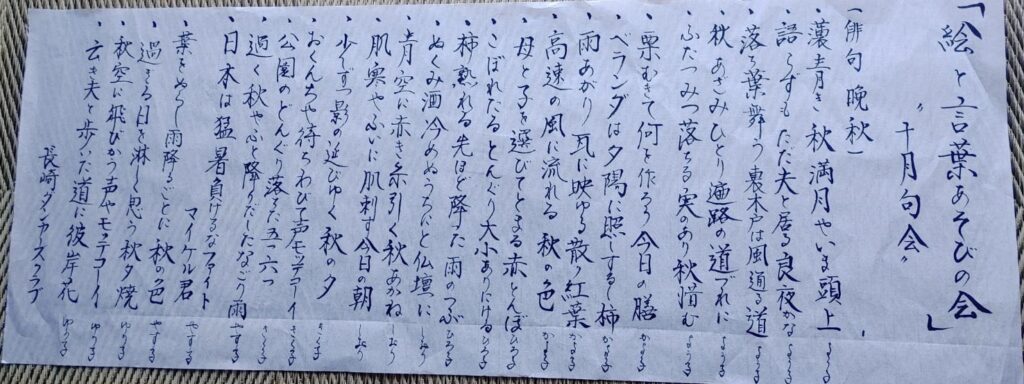 「絵と言葉あそびの会」
〝十月句会〟
(俳句 晩秋)
・濃青き秋満月やいま頭上
・語らずもただ夫と居る良夜かな
・落ち葉舞う裏木戸は風通る道
・秋あざみひとり遍路の道づれに
・ふたつみつ落ちる実のあり秋惜む
・栗むきて何を作ろう今日の膳
・ベランダは夕陽に照し 柿
・雨あがり瓦に映ゆる散り紅葉
・高速の風に流れる秋の色
・母と子を選びてとまる赤とんぼ ひろ子
・こぼれたるどんぐり大小ありにける ひろ子
・柿熟れる先ほど降った雨のつぶ ひろ子
・ぬくみ酒冷めぬうちにと仏壇に しおり
・青空に赤き糸引く秋あかね しおり
・肌寒やふいに肌刺す今日の朝 しおり
・少しずつ影の延びゆく秋の夕
・おくんちや待ちわびて声モッテコーイ
・公園のどんぐり落ちた五つ六つ
・過ぐ秋やふと降りだしたなごり雨 やす子
・日本は猛暑負けるなファイト
マイケル君 やす子
・葉をぬらし雨降るごとに秋の色 やす子
・過ぎる日を淋しく思う秋夕焼 ゆう子
・秋空に飛びかう声やモッテコーイ ゆう子
・云き夫と歩いた道に彼岸花 ゆう子
長崎ダンサーズクラブ